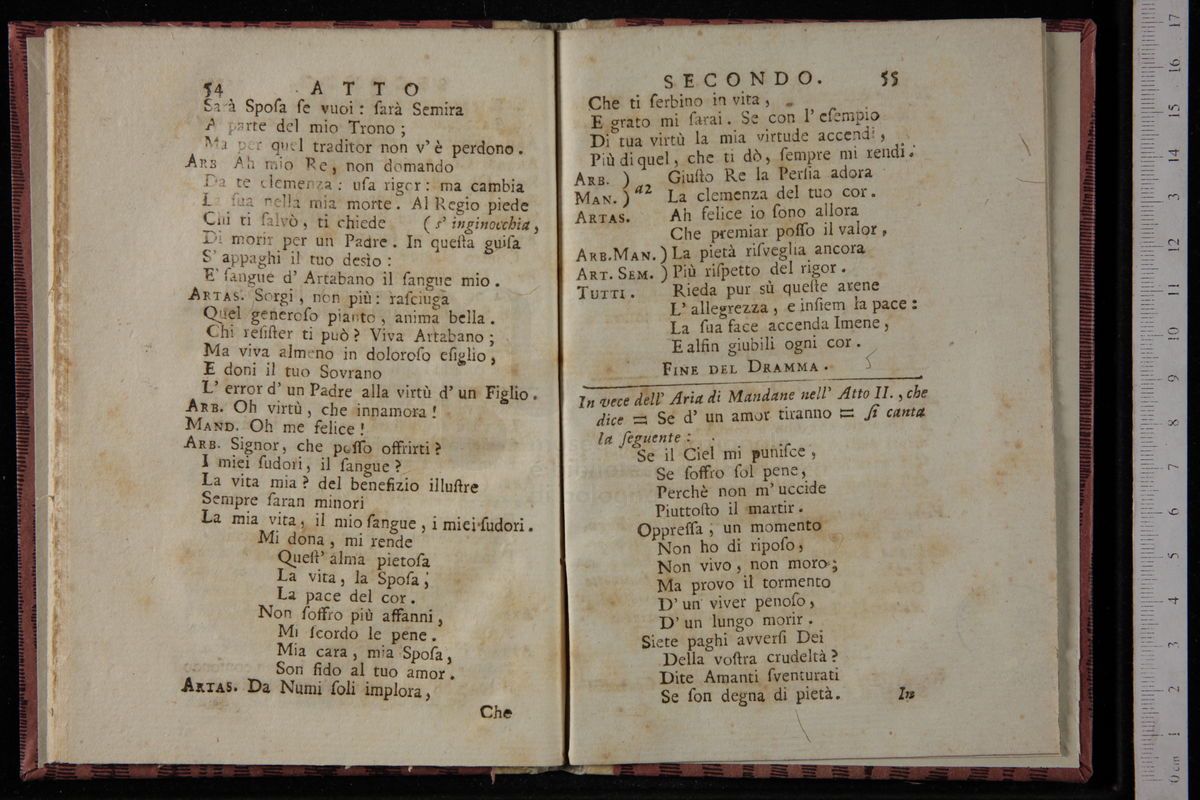 54 ATTO
Sarà Sposa se vuoi: sarà Semira
A parte del mio Trono;
Ma per quel traditor non v'è perdono.
ARB Ah mio Re, non domando
Da te clemenza: usa rigor: ma cambia
La sua nella mia morte. Al Regio piede
Chi ti salvò, ti chiede (s'inginocchia,
Di morir per un Padre. In questa guisa
S'appaghi il tuo desìo:
E' sangue d'Artabano il sangue mio.
ARTAS. Sorgi, non più: rasciuga
Quel generoso pianto, anima bella.
Chi resister ti può? Viva Artabano;
Ma viva almeno in doloroso esiglio,
E doni il tuo Sovrano
L'error d'un Padre alla virtù d'un Figlio.
ARB. Oh virtù, che innamora!
MAND. Oh me felice!
ARB. Signor, che posso offrirti?
I miei sudori, il sangue?
La vita mia? del benefizio illustre
Sempre saran minori
La mia vita, il mio sangue, i miei sudori.
Mi dona, mi rende
Quest'alma pietosa
La vita, la Sposa,
La pace del cor.
Non soffro più affanni,
Mi scordo le pene.
Mia cara, mia Sposa,
Son fido al tuo amor.
ARTAS. Da Numi soli implora,
Che
SECONDO. 55
Che ti serbino in vita,
E grato mi sarai. Se con l'esempio
Di tua virtù la mia virtude accendi,
Più di quel, che ti dò, sempre mi rendi.
ARB. ) Giusto Re la Persia adora
MAN. ) a2 La clemenza del tuo cor.
ARTAS. Ah felice io sono allora
Che premiar posso il valor,
ARB. MAN. ) La pietà risveglia ancora
ART. SEM. ) Più rispetto del rigor.
TUTTI. Rieda pur sù queste arene
L'allegrezza, e insiem la pace:
La sua face accenda Imene,
E alfin giubili ogni cor.
FINE DEL DRAMMA.
In vece dell' Aria di Mandane nell' Atto II., che
dice = Se d'un amor tiranno = si canta
la seguente:
Se il Ciel mi punisce,
Se soffro sol pene,
Perchè non m'uccide
Piuttosto il martir.
Oppressa, un momento
Non ho di riposo,
Non vivo, non moro;
Ma provo il tormento
D'un viver penoso,
D'un lungo morir.
Siete paghi avversi Dei
Della vostra crudeltà?
Dite Amanti sventurati
Se son degna di pietà.
In
0 cm 1 2 3 4 5 6 7 8 9 10 11 12 13 14 15 16 17